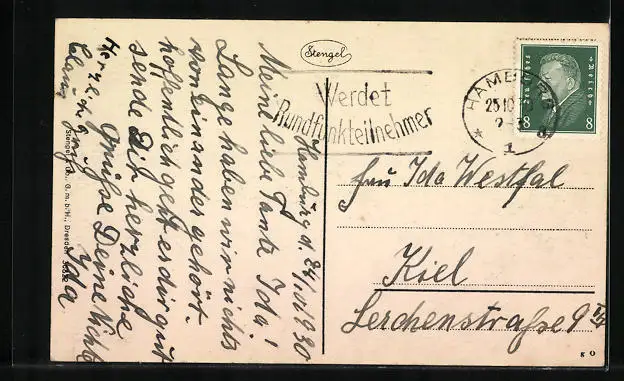 Stengel
Werdet
Rundfunkteilnehmer
HAMBURG
25.10
1
Deutsches Reich
8 8
Hamburg d. 24/10. 1930
Meine liebe Tante Ida!
Lange haben wir nichts
von einander gehört.
hoffentlich geht es dir gut
sende Dir herzliche
Grüße Deine Nichte
Ida
Frau Ida Westfal
Kiel
Lerchenstraße 9
Stengel & Co., G. m. b. H., Dresden